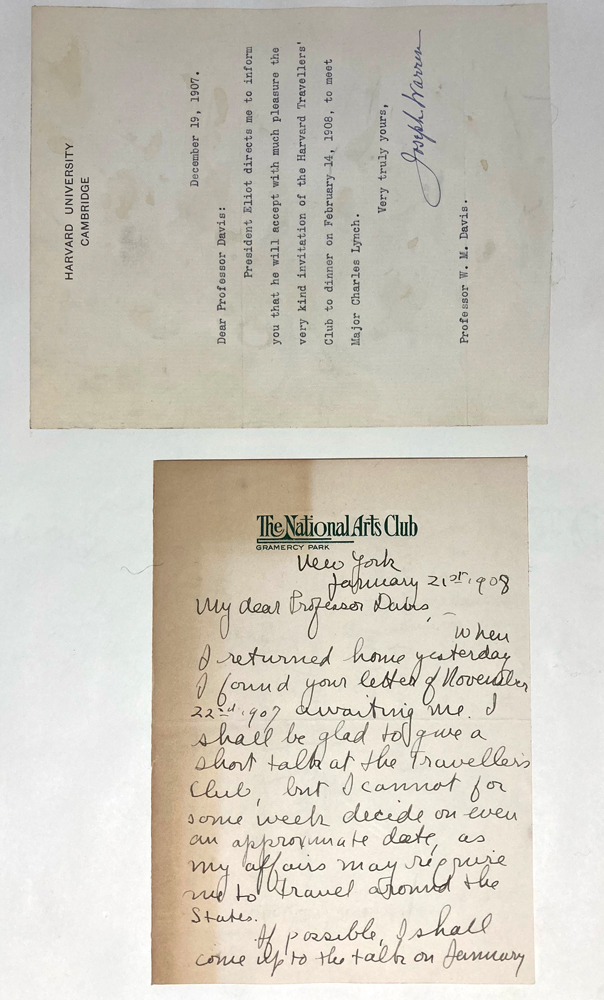 HARVARD UNIVERSITY
CAMBRIDGE
December 19, 1907.
Dear Professor Davis:
President Eliot directs me to inform
you that he will accept with much pleasure the
very kind invitation of the Harvard Travellers'
Club to dinner on February 14, 1908, to meet
Major Charles Lynch.
Very truly yours,
Joseph Warren
Professor W. M. Davis.
The National Arts Club
GRAMERCY PARK
New York
January 21st 1908
My dear Professor Davis, —
When
I returned home yesterday
I found your letter of November
22nd 1907 awaiting me. I
shall be glad to give a
short talk at the Travellers
Club, but I cannot for
some week decide on even
an approximate date, as
my affairs may require
me to travel around the
States.
If possible, I shall
come up to the talk on January